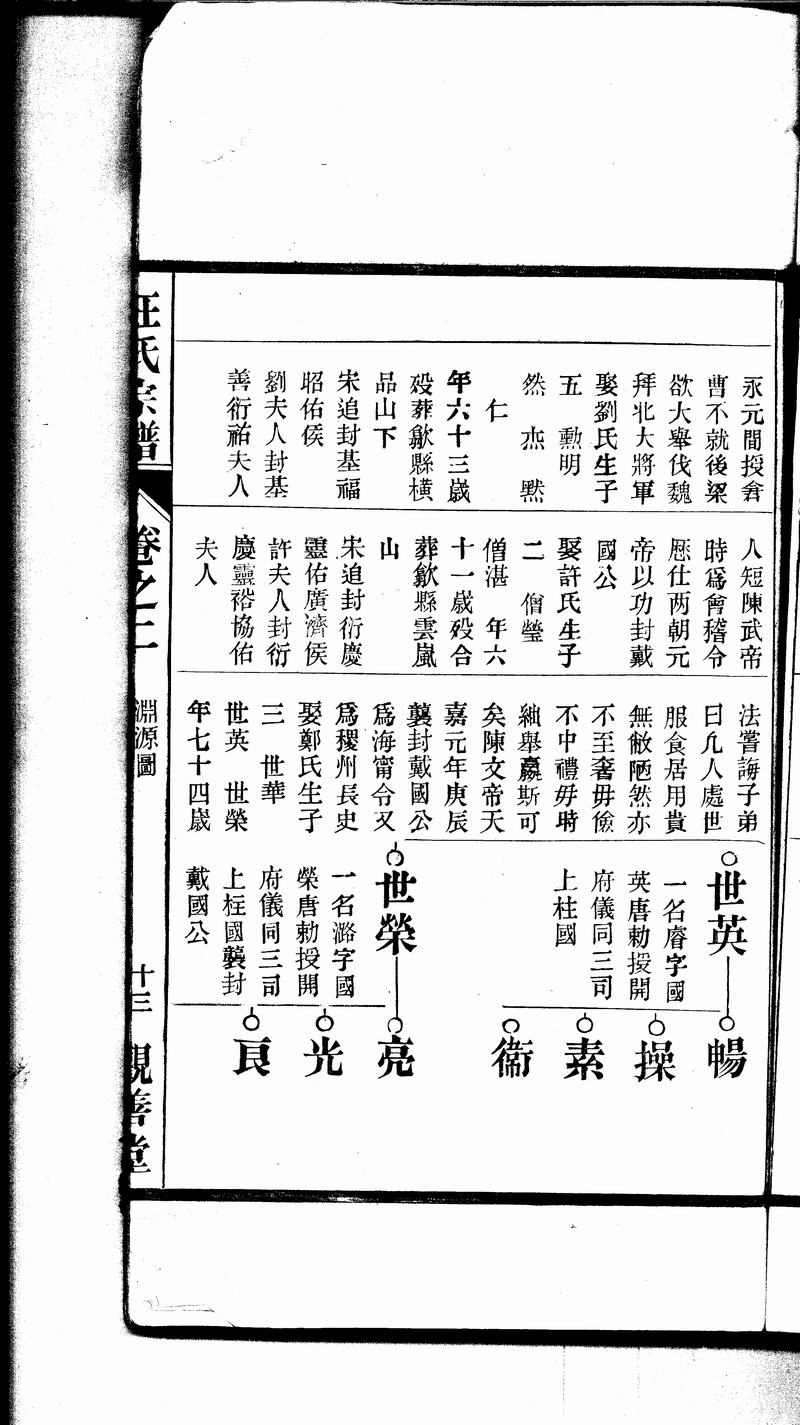 永元間授會
曹不就後梁
欲大舉伐魏
拜北大將軍
娶劉氏生子
五　勲明
然　杰　默
仁
年六十三歲
殁葬歙縣橫
品山下
宋追封基福
昭佑侯
劉夫人封基
善衍祐夫人
人短陳武帝
時爲會稽令
歴仕两朝元
帝以功封戴
國公
娶許氏生子
二　僧瑩
僧湛　年六
十一歲殁合
葬歙縣雲嵐
山
宋追封衍慶
靈佑廣濟侯
許夫人封衍
慶靈裕協佑
夫人
法嘗誨子弟
曰凢人處世
服食居用貴
無敝陋然亦
不至奢毋儉
不中禮毋時
絀舉嬴斯可
矣陳文帝天
嘉元年庚辰
襲封戴國公
爲海甯令又
爲稷州長史
娶鄭氏生子
三　世華
世英　世榮
年七十四歲
世英
一名㢝字國
英唐勅授開
府儀同三司
上柱國
世榮
一名潞字國
榮唐勅授開
府儀同三司
上柱國襲封
戴國公
暢
操
素
衞
亮
光
良
汪氏宗譜
卷之二
淵源圖
十三
觀善堂